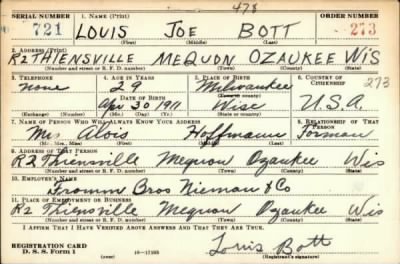 478
SERIAL NUMBER 1. NAME (Print) ORDER NUMBER
721 LOUIS JOE BOTT 273
(First) (Middle) (Last)
2. ADDRESS (Print)
R2 THIENSVILLE MEQUON OZAUKEE WIS
(Number and street or R. F. D. number) (Town) (County) (State)
3. TELEPHONE 4. AGE IN YEARS 5. PLACE OF BIRTH 6. COUNTRY OF CITIZENSHIP
none 29 Milwaukee 273
DATE OF BIRTH (Town or county)
Apr 30 1911 Wisc U.S.A.
(Exchange) (Number) (Mo.) (Day) (Yr.) (State or country)
7. NAME OF PERSON WHO WILL ALWAYS KNOW YOUR ADDRESS 8. RELATIONSHIP OF THAT PERSON
Mrs Alois Hoffmann Forman
(Mr., Mrs., Miss) (First) (Middle) (Last)
9. ADDRESS OF THAT PERSON
R2 Thiensville Mequon Ozaukee Wis
(Number and street or R. F. D. number) (Town) (County) (State)
10. EMPLOYER'S NAME
Fromm Bros Nieman & Co
11. PLACE OF EMPLOYMENT OR BUSINESS
R2 Thiensville Mequon Ozaukee Wis
(Number and street or R. F. D. number) (Town) (County) (State)
I AFFIRM THAT I HAVE VERIFIED ABOVE ANSWERS AND THAT THEY ARE TRUE.
REGISTRATION CARD
D. S. S. Form 1 16-17105 Louis Bott
(Registrant's signature)